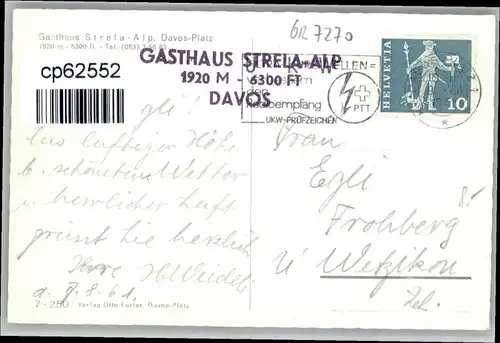 GR 7270
Gasthaus Strela-Alp, Davos-Platz
1920 m - 6300 ft. - Tel. (083)
cp62552
GASTHAUS STRELA-ALP
1920 M - 6300 FT
DAVOS
WELLEN=
den
Radioempfang
UKW-PRÜFZEICHEN
PTT
HELVETIA
10
Aus luftiger Höhe
b. schönstem Wetter
u herrlicher Luft
grüsst Sie herzlich
d. 7.8.61.
Frau
Egli
Frohberg
U Wetzikon
7-250 Verlag Otto Furter, Davos-Platz